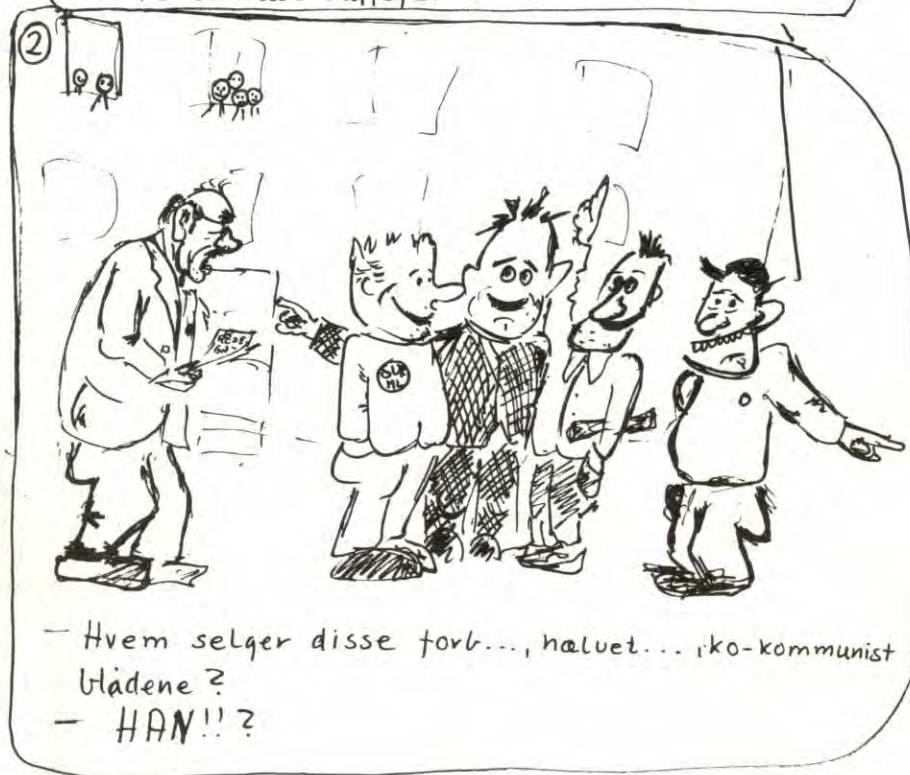 ②
SUF
ML
- Hvem selger disse forb..., hælvet... ,ko-kommunist
blådene?
- HAN!!?